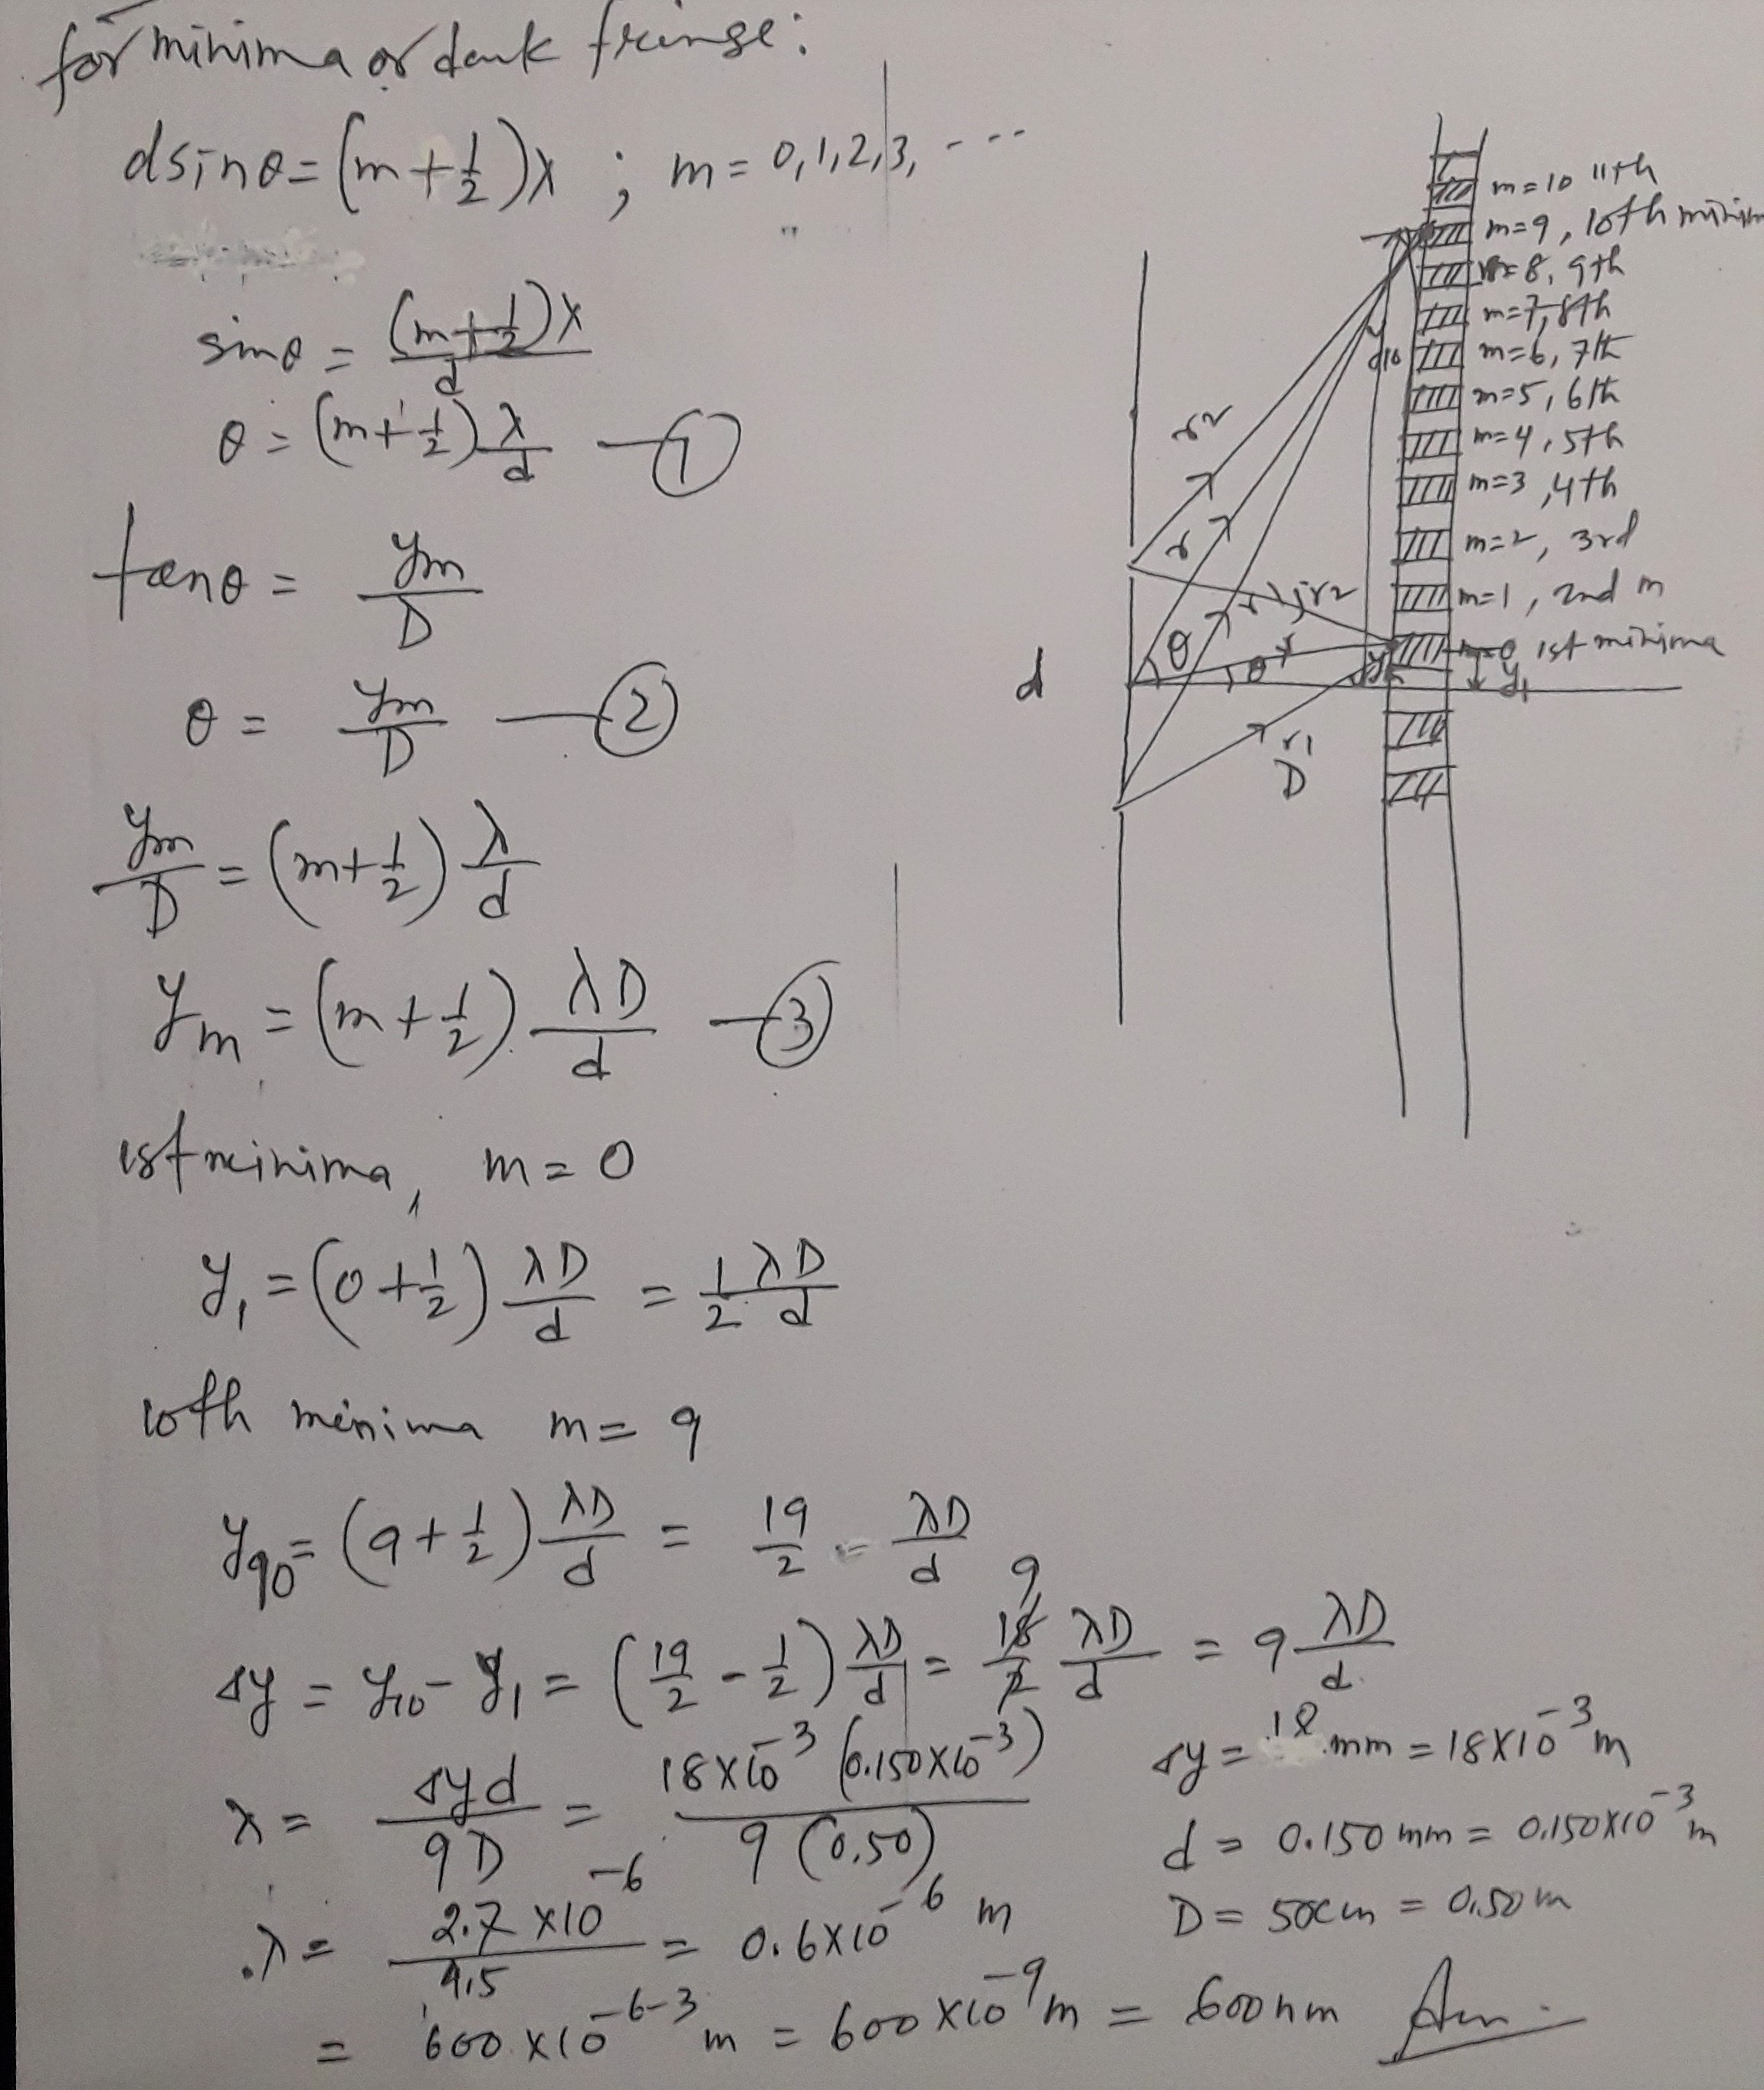 for minima or dark fringe:
dsinθ = (m + 1/2)λ ; m = 0,1,2,3, ---
sinθ = (m + 1/2)λ / d
θ = (m + 1/2) λ/d — 1
tanθ = ym / D
θ = ym / D — 2
ym / D = (m + 1/2) λ/d
ym = (m + 1/2) λD/d — 3
1st minima, m = 0
y1 = (0 + 1/2) λD/d = 1/2 λD/d
10th minima m = 9
y90 = (9 + 1/2) λD/d = 19/2 λD/d
Δy = y10 - y1 = (19/2 - 1/2) λD/d = 18/2 9 λD/d = 9 λD/d
λ = Δyd / 9D = 18×10^-3 (0.150×10^-3) / 9(0.50)
λ = 2.7×10^-6 / 4.5 = 0.6×10^-6 m
= 600×10^-6-3 m = 600×10^-9 m = 600nm Ans.
Δy = 18 mm = 18×10^-3 m
d = 0.150 mm = 0.150×10^-3 m
D = 50cm = 0.50m
m=10 11th
m=9, 10th minim
m=8, 9th
m=7, 8th
m=6, 7th
m=5, 6th
m=4, 5th
m=3, 4th
m=2, 3rd
m=1, 2nd m
m=0 1st minima
y1
y10
r2
r
r1
r2
θ
θ
r
d
r1
D